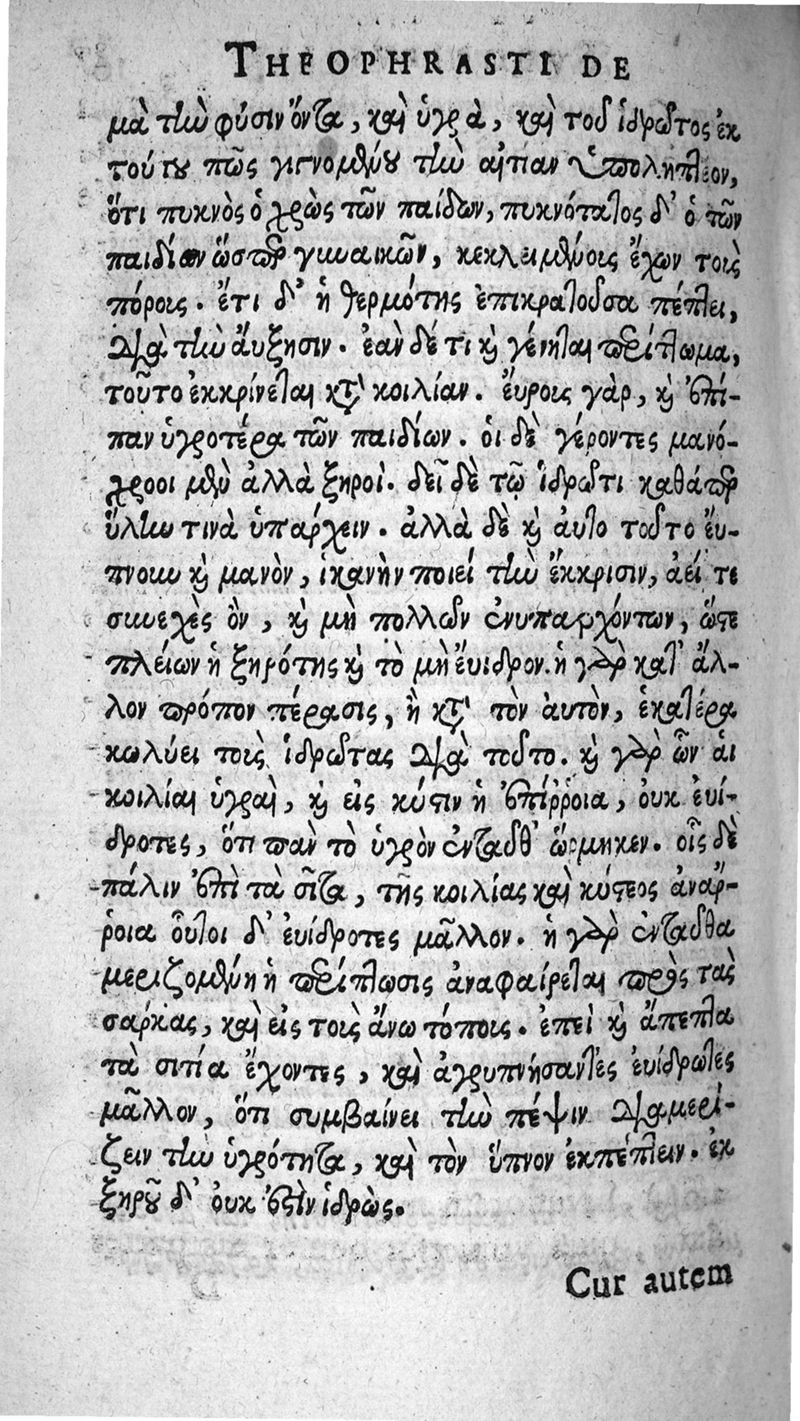 THEOPHRASTI DE
μὰ τὴν φύσιν ὄντα, καὶ ὑγρὰ, καὶ τοῦ ἱδρῶτος ἐκ
τούτου πῶς γιγνομένου τὴν αἰτίαν ὑποληπτέον,
ὅτι πυκνὸς ὁ χρὼς τῶν παίδων, πυκνότατος δ' ὁ τῶν
παιδίων ὥσπερ γυναικῶν, κεκλειμένοις ἔχων τοῖς
πόροις. ἔτι δ' ἡ θερμότης ἐπικρατοῦσα πέπτει,
διὰ τὴν ἄυξησιν. ἐὰν δέ τι καὶ γένηται περίττωμα,
τοῦτο ἐκκρίνεται κατὰ κοιλίαν. ἔυροις γὰρ, καὶ ἐπί-
παν ὑγροτέρα τῶν παιδίων. οἱ δὲ γέροντες μανό-
χροοι μὲν ἀλλὰ ξηροί. δεῖ δὲ τῷ ἱδρῶτι καθάπερ
ὕλην τινὰ ὑπάρχειν. ἀλλὰ δὲ καὶ ἀυτο τοῦτο ἔυ-
πνουν καὶ μανὸν, ἱκανὴν ποιεῖ τὴν ἔκκρισιν, ἀεί τε
συνεχὲς ὂν, καὶ μὴ πολλῶν ἐνυπαρχόντων, ὥστε
πλείων ἡ ξηρότης καὶ τὸ μὴ ἔυιδρον. ἡ γὰρ κατ' ἄλ-
λον τρόπον πέρασις, ἢ κατὰ τὸν ἀυτὸν, ἑκατέρα
κωλύει τοῖς ἱδρῶτας διὰ τοῦτο. καὶ γὰρ ὧν ἁι
κοιλίαι ὑγραὶ, καὶ εἰς κύστιν ἡ ἐπίρῥοια, ὀυκ ἐυί-
δροτες, ὅτι παν τὸ ὑγρὸν ἐνταῦθ' ὥρμηκεν. οἷς δὲ
πάλιν ἐπὶ τὰ σῖτα, τῆς κοιλίας καὶ κύστεος ἀναῤ-
ῥοια οὗτοι δ' ἐυίδροτες μᾶλλον. ἡ γὰρ ἐνταῦθα
μεριζομένη ἡ περίττωσις ἀναφαίρεται πρὸς τας
σαρκας, καὶ εἰς τοὶς ἄνω τόποις. ἐπεὶ καὶ ἄπεπτα
τὰ σιτία ἔχοντες, καὶ ἀγρυπνήσαντες ἐυίδρωτες
μᾶλλον, ὅτι συμβαίνει τὴν πέψιν διαμερί-
ζειν τὴν ὑγρότητα, καὶ τὸν ὕπνον ἐκπέπτειν. ἐκ
ξηροῦ δ' ὀυκ ἐστὶν ἱδρὼς.
Cur autem